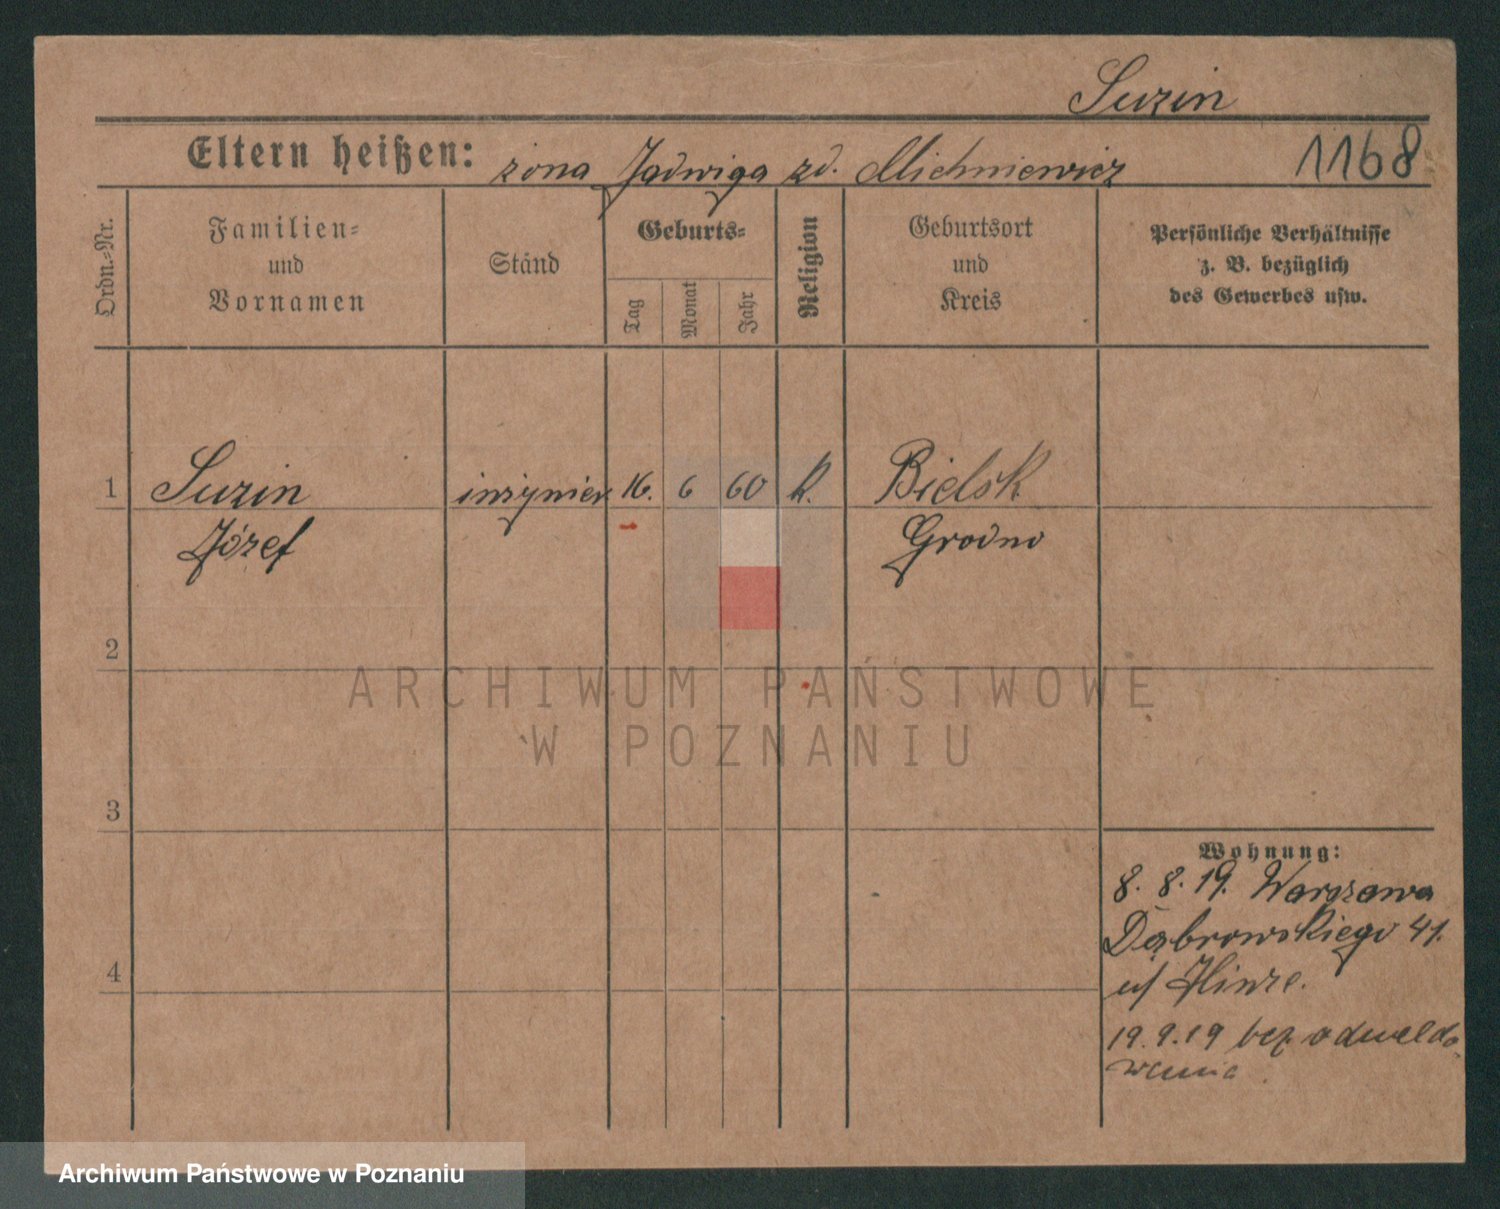 Suzin
Eltern heißen: żona Jadwiga zd. Michniewicz 1168
Ordn.=Nr.
Familien=
und
Vornamen
Stand
Geburts=
Tag
Monat
Jahr
Religion
Geburtsort
und
Kreis
Persönliche Verhältnisse
z. B. bezüglich
des Gewerbes usw.
1 Suzin inżynier 16. 6 60 k. Bielsk
Józef Grodno
2
ARCHIWUM PAŃSTWOWE
W POZNANIU
3
Wohnung:
8. 8. 19. Warszawa
Dąbrowskiego 41.
u/
4
19.9.19 bez odmeldo
wania
Archiwum Państwowe w Poznaniu